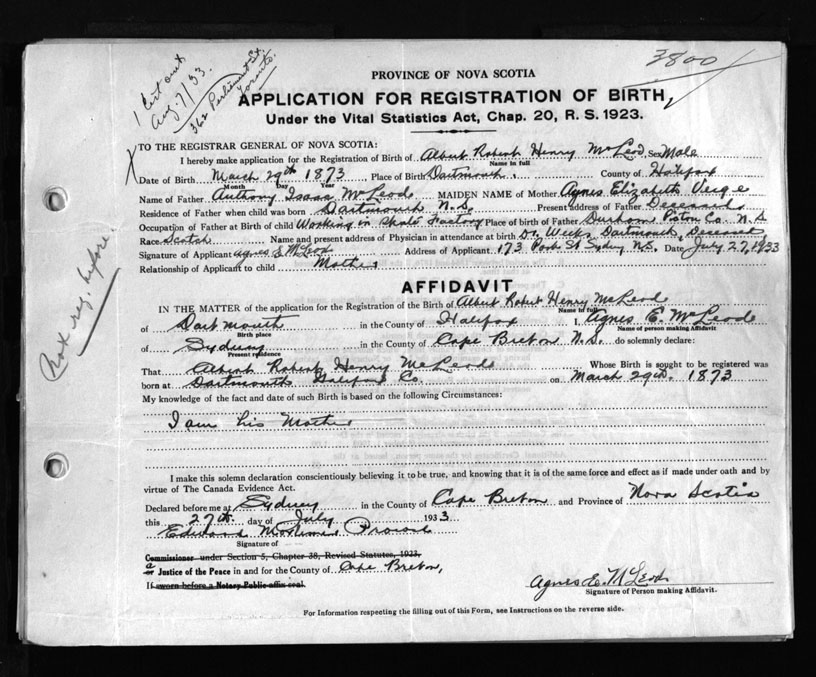 1 Cert out
Aug. 7/33.
362 Parliament St.
Toronto.
3800
PROVINCE OF NOVA SCOTIA
APPLICATION FOR REGISTRATION OF BIRTH
Under the Vital Statistics Act, Chap. 20, R. S. 1923.
TO THE REGISTRAR GENERAL OF NOVA SCOTIA:
I hereby make application for the Registration of Birth of Albert Robert Henry McLeod Sex Male
Name in full
Date of Birth March 29th 1873 Place of Birth Dartmouth. County of Halifax
Month Day Year
Name of Father Anthony Isaac McLeod MAIDEN NAME of Mother Agnes Elizabeth Verge
Residence of Father when child was born Dartmouth N.S. Present address of Father Deceased
Occupation of Father at Birth of child Working in Skate Factory Place of Birth of Father Durham Pictou Co. N.S
Race Scotch Name and present address of Physician in attendance at birth Dr. Weeks Dartmouth, Deceased
Signature of Applicant Agnes E McLeod Address of Applicant 173 Park St Sydney N.S. Date July 27, 1933
Relationship of Applicant to child Mother
AFFIDAVIT
IN THE MATTER of the application for the Registration of the Birth of Albert Robert Henry McLeod
Name in full
of Dartmouth in the County of Halifax I, Agnes E. McLeod
Birth place Name of person making Affidavit
of Sydney in the County of Cape Breton N.S. do solemnly declare:
Present residence
That Albert Robert Henry McLeod Whose Birth is sought to be registered was
born at Dartmouth Halifax Co. on March 29th. 1873
My knowledge of the fact and date of such Birth is based on the following Circumstances:
I am his Mother
Not reg. before
I make this solemn declaration conscientiously believing it to be true, and knowing that it is of the same force and effect as if made under oath and by
virtue of The Canada Evidence Act.
Declared before me at Sydney in the County of Cape Breton and Province of Nova Scotia
this 27th. day of July 1933
Edward Mortimer
Signature of
Commissioner under Section 5, Chapter 38, Revised Statutes, 1923,
a
or Justice of the Peace in and for the County of Cape Breton,
If sworn before a Notary Public affix seal.
Agnes E. McLeod
Signature of Person making Affidavit.
For Information respecting the filling out of this Form, see Instructions on the reverse side.